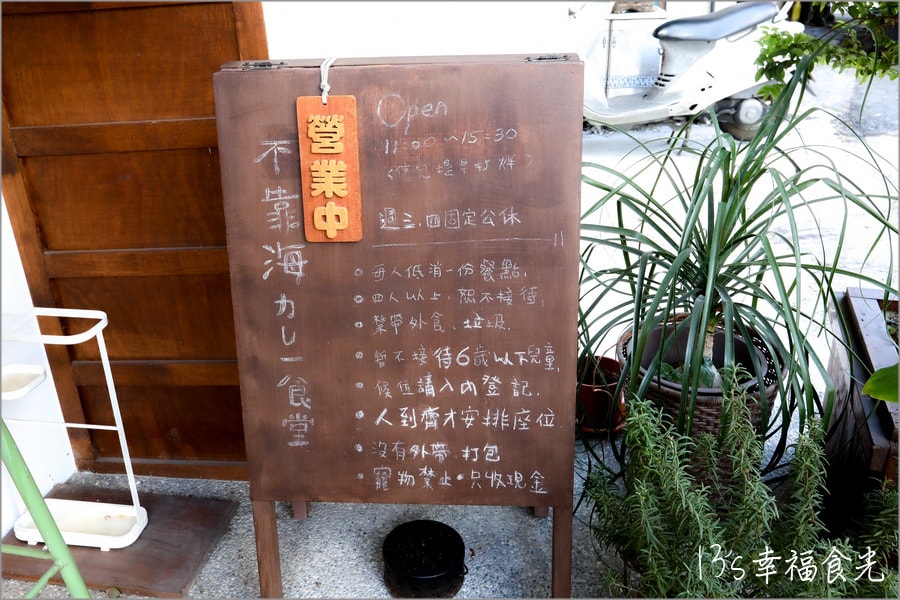 不靠海カレー食堂
營業中
Open
11:00~15:30
(售完提早打烊)
週三.四固定公休
每人低消一份餐點.
四人以上.恕不接待.
禁帶外食.垃圾.
暫不接待6歲以下兒童.
候位請入內登記.
人到齊才安排座位
沒有外帶.打包
寵物禁止.只收現金
13's幸福食光